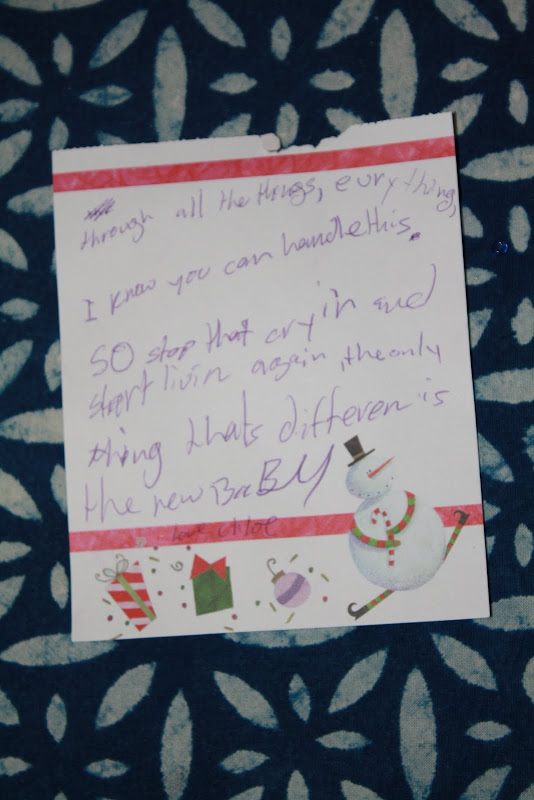 through all the things, eury thing,
I know you can handle this.
SO stop that cryin and
start livin again, the only
thing thats differen is
the new BaBY
love chloe